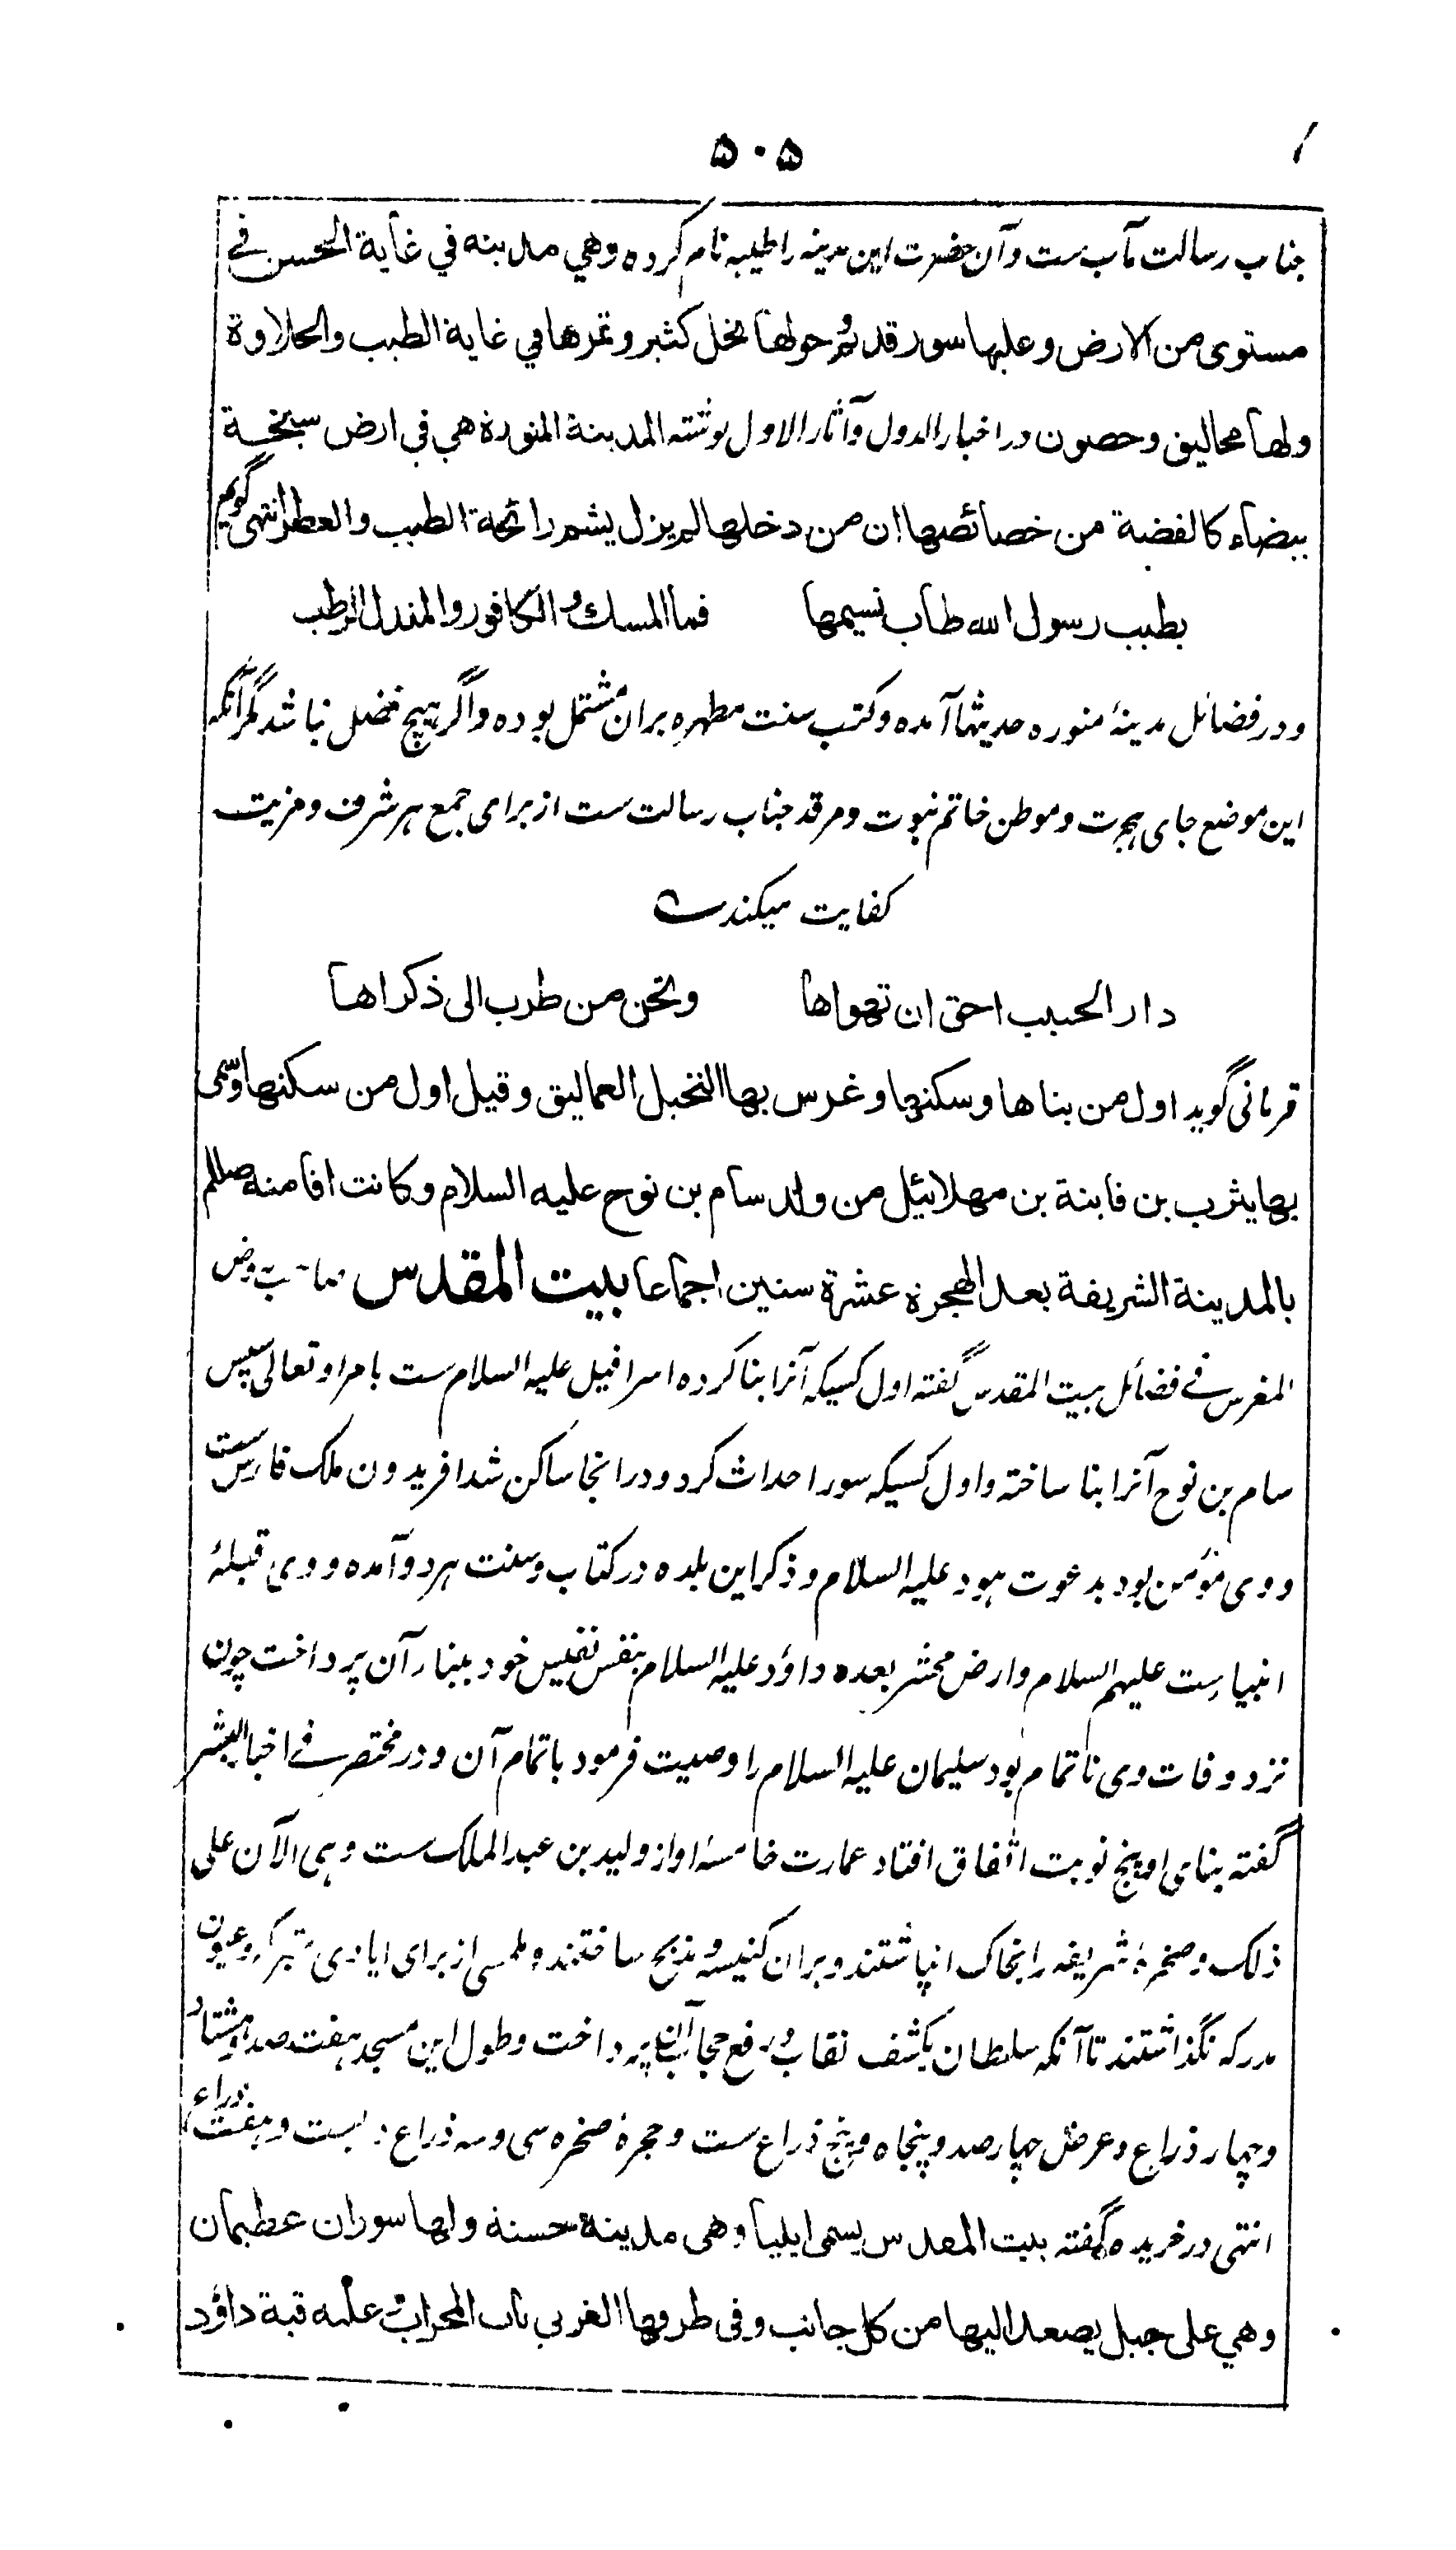 ۵۰۵
جناب رسالت مآب ست وآن حضرت این مدینه را طیبه نام کرده وهي مدینه في غایة الحسن فے
مستوی من الارض وعلیها سور قدیم وحولها نخل کثیر وتمرها في غایة الطیب والحلاوة
ولها محالیف وحصون در اخبار الدول وآثار الاول نوشته المدینة المنورة هي في ارض سبخة
بیضاء کالفضة من خصائصها ان من دخلها لم یزل یشم رائحة الطیب والعطر انتهی گویم
بطیب رسول الله طاب نسیمها فما المسك والکافور والمندل الرطب
ودر فضائل مدینهٔ منوره حدیثها آمده وکتب سنت مطهره بران مشتمل بوده واگر هیچ فضل نباشد مگر آنکه
این موضع جای هجرت وموطن خاتم نبوت ومرقد جناب رسالت ست از برای جمع هر شرف ومزیت
کفایت میکند
دار الحبیب احق ان تهواها ونحن من طرب الی ذکراها
قرمانی گوید اول من بناها وسکنها وغرس بها النخیل العمالیق وقیل اول من سکنها وسمی
بها یثرب بن قابنة بن مهلائیل من ولد سام بن نوح علیه السلام وکانت اقامته صللم
بالمدینة الشریفة بعد الهجرة عشرة سنین اجماعا بیت المقدس
المغرس فے فضائل بیت المقدس گفته اول کسیکه آنرا بنا کرده اسرافیل علیه السلام ست بامر او تعالی سپس
سام بن نوح آنرا بنا ساخته واول کسیکه سور احداث کرد ودرانجا ساکن شد افریدون ملک فارس ست
ووی مؤمن بود بدعوت هود علیه السلام وذکر این بلده در کتاب وسنت هر دو آمده ووی قبلهٔ
انبیاست علیهم السلام وارض محشر بعده داؤد علیه السلام بنفس نفیس خود ببناء آن پرداخت چون
نزد وفات وی ناتمام بود سلیمان علیه السلام را وصیت فرمود باتمام آن ودر مختصر فے اخبار البشر
گفته بنای او پنج نوبت اتفاق افتاد عمارت خامسهٔ او از ولید بن عبد الملک ست وهی الآن علی
ذلک وصخرهٔ شریفه را بخاک انپاشتند وبران کنیسه ومذبح ساختند وملمسی از برای ایادی متبرکه وعیون
مدرکه نگذاشتند تا آنکه سلطان بکشف نقاب ورفع حجاب آن پرداخت وطول این مسجد هفت صد وهشتاد
وچهار ذراع وعرض چهار صد وپنجاه وپنج ذراع ست وحجرهٔ صخره سی وسه ذراع در بست وهفت ذراع
انتهی در خریده گفته بیت المقدس یسمی ایلیا وهی مدینة حسنة ولها سوران عظیمان
وهي علی جبل یصعد الیها من کل جانب وفی طرفها الغربي باب المحراب علیه قبة داؤد